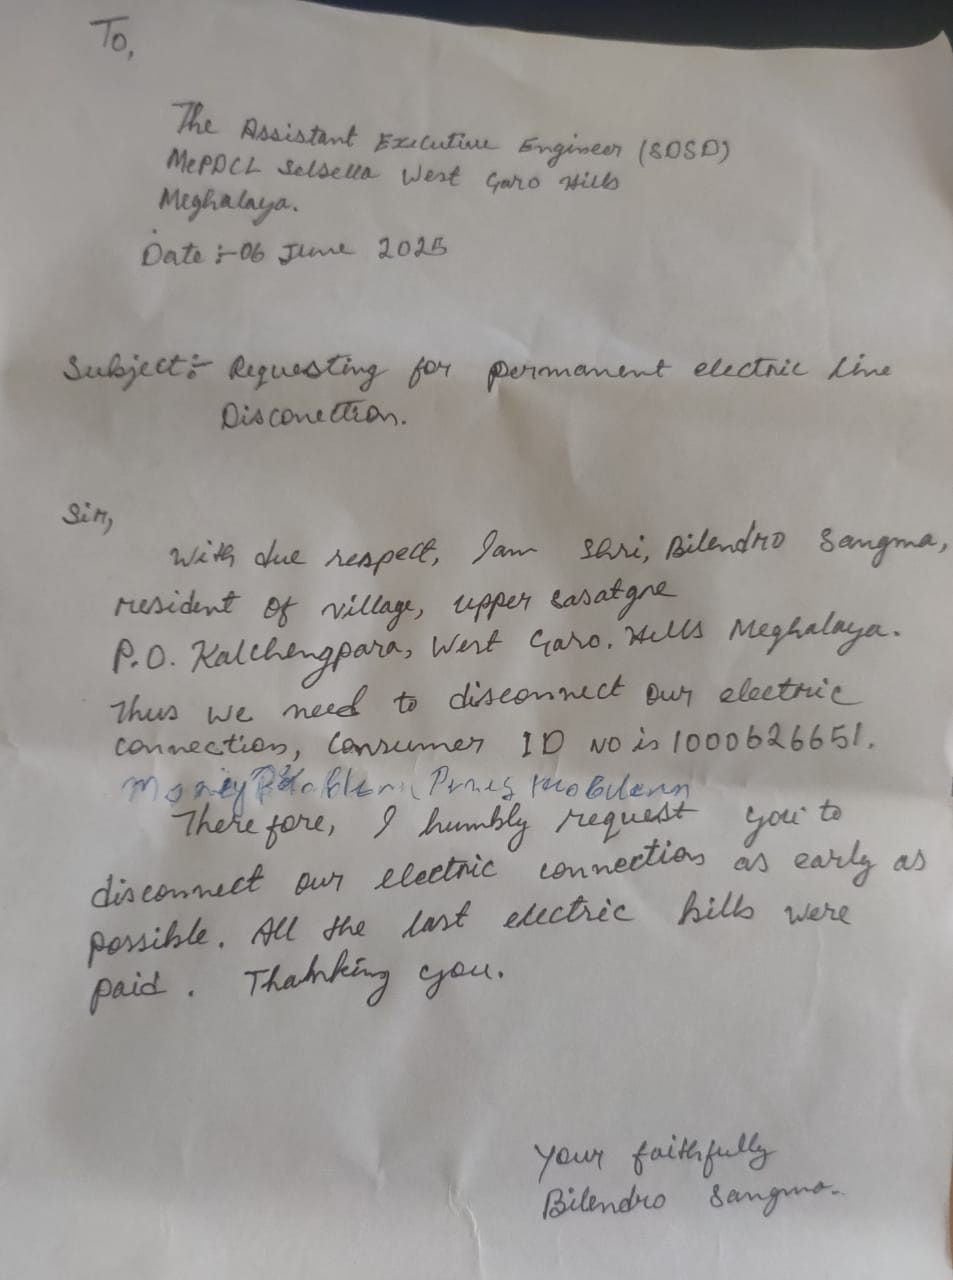 To,
The Assistant Executive Engineer (SDSD)
MePDCL Selsella West Garo Hills
Meghalaya.
Date :- 06 June 2025
Subject:- Requesting for permanent electric line
Disconection.
Sir,
With due respect, I am Shri, Bilendro Sangma,
resident of village, upper
P.O. Kalchengpara, West Garo. Hills Meghalaya.
Thus we need to disconnect our electric
connection, Consumer ID NO is 1000626651.
Money
Therefore, I humbly request you to
disconnect our electric connection as early as
possible. All the last electric bills were
paid. Thahnking you.
Your faithfully
Bilendro Sangma.